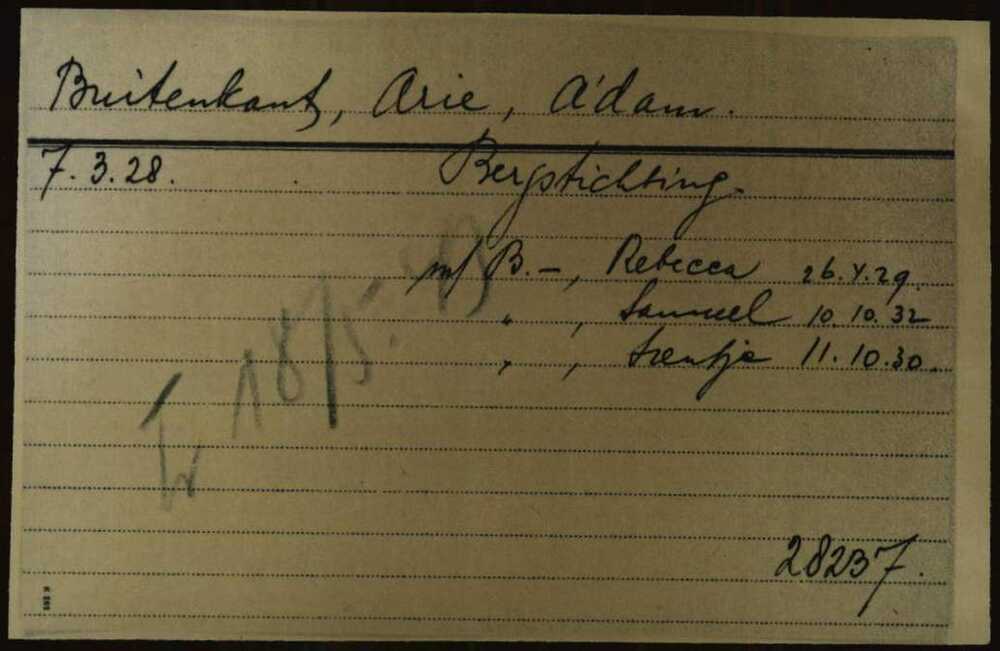 Buitenkant, Arie, A'dam.
7.3.28. Bergstichting.
m/ B. –, Rebecca 26.4.29.
" , Samuel 10.10.32
" , 11.10.30.
18/5-43
28237.